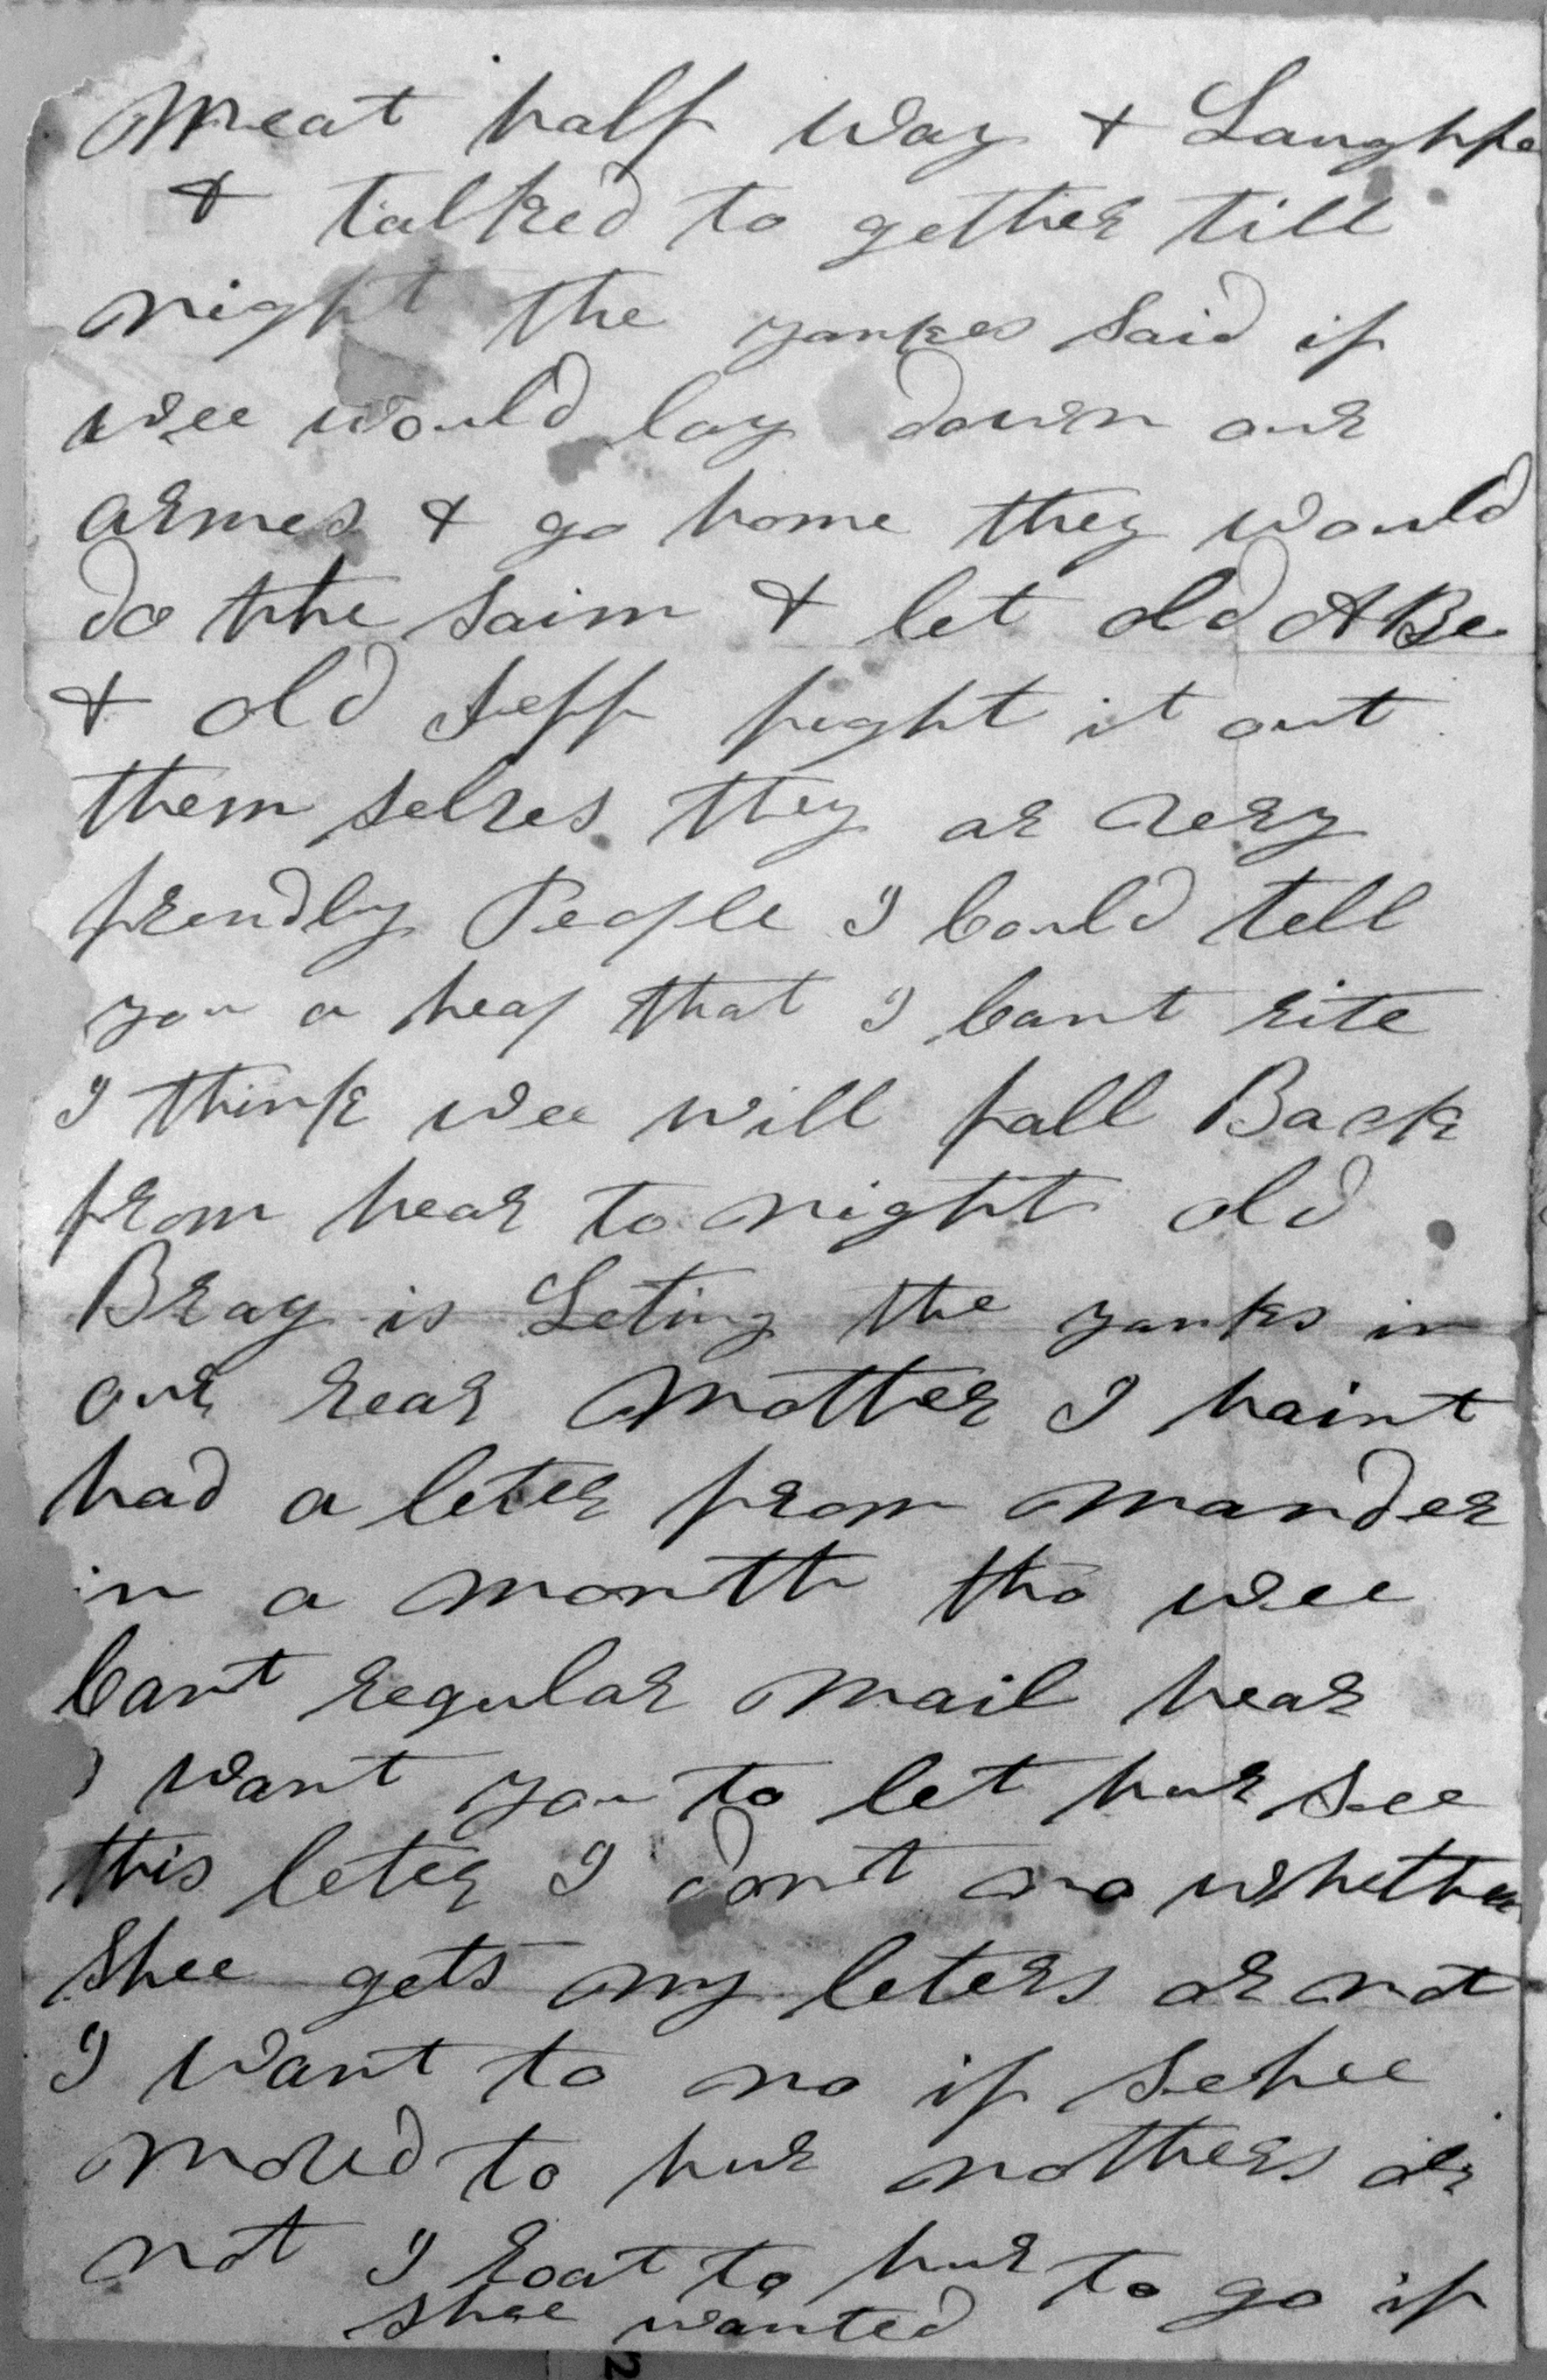 Meat half way & Laughfe
& talked to gether till
night the yankes said if
wee would lay down our
armes & go home they would
do the saim & let old ABe
& old Jeff fight it out
them selves they ar very
frendly People I Could tell
you a heap that I Cant rite
I think wee will fall Back
from hear to night old
Brag is Leting the yanks in
our rear Mother I haint
had a leter from Mander
in a month tho wee
Cant regular Mail hear
I want you to let hur see
this leter I dont no whether
Shee gets my leters or not
I want to no if Sehee
Moved to hur mothers or
not I roat to hur to go if
shee wanted
2